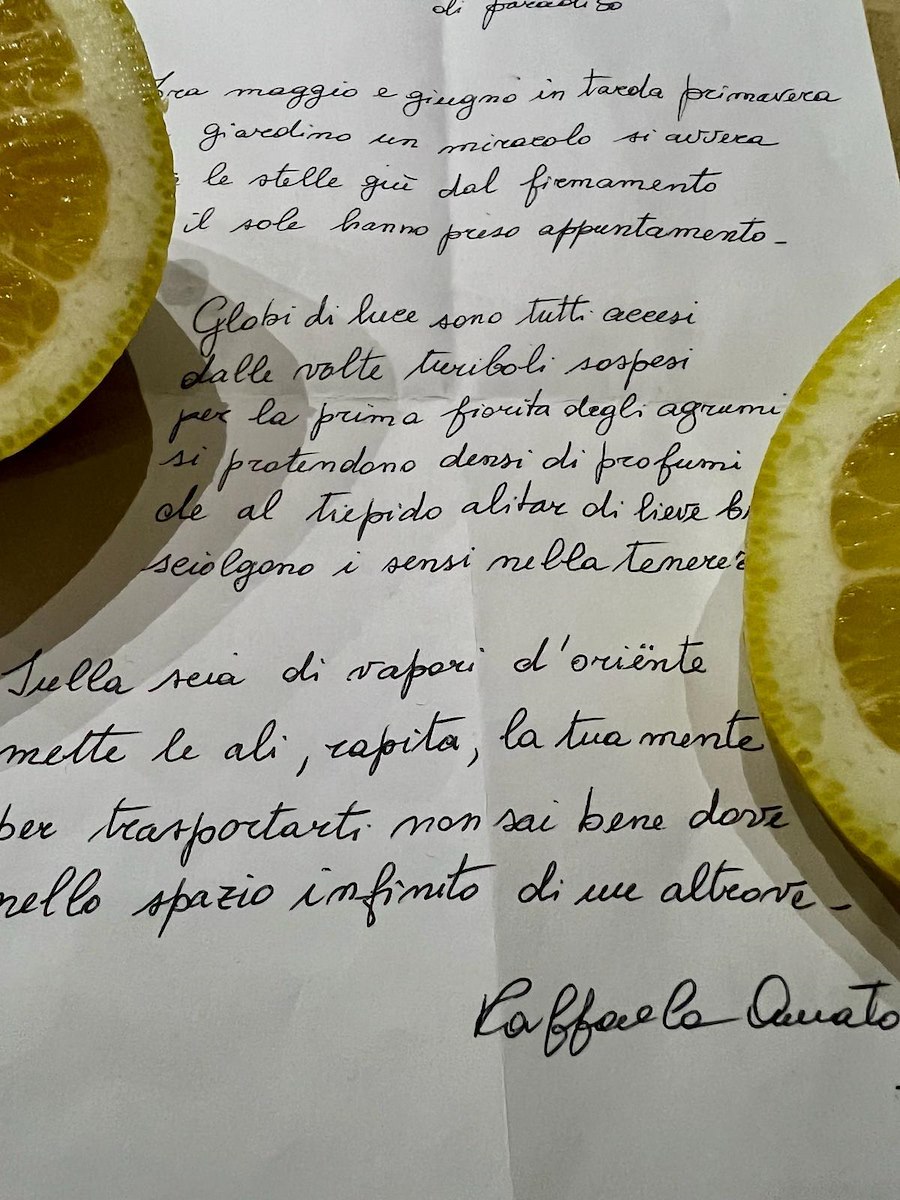 di paradiso
Tra maggio e giugno in tarda primavera
giardino un miracolo si avvera
le stelle giù dal firmamento
il sole hanno preso appuntamento_
Globi di luce sono tutti accesi
dalle volte turiboli sospesi
per la prima fiorita degli agrumi
si protendono densi di profumi
che al tiepido alitar di lieve b
sciolgono i sensi nella tenerez
Sulla scia di vapori d'oriënte
mette le ali, rapita, la tua mente
per trasportarti non sai bene dove
nello spazio infinito di un altrove_
Raffaela Amato